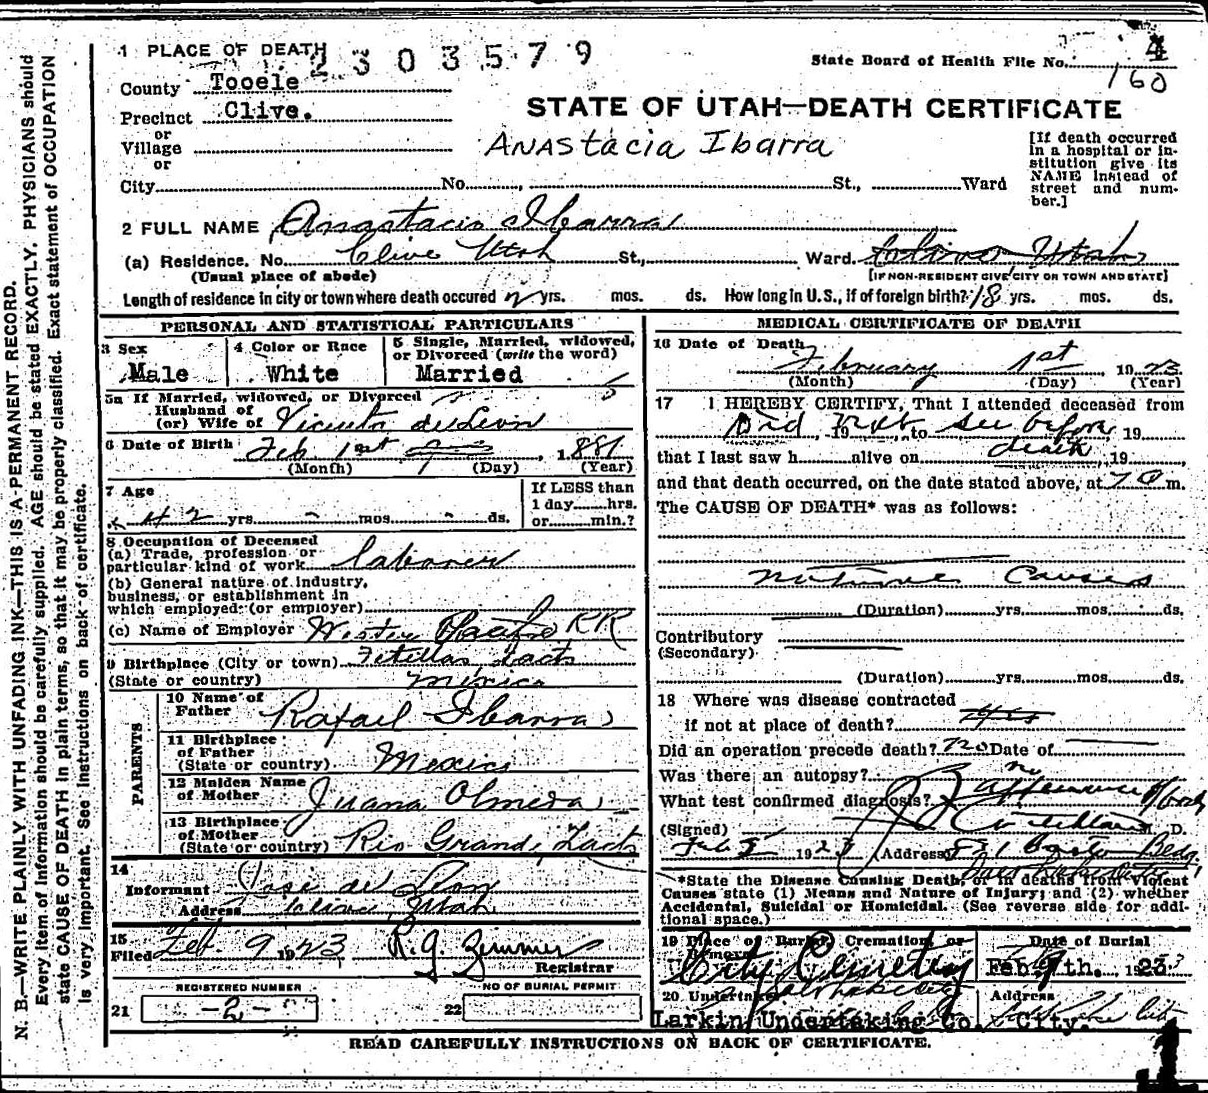 1 PLACE OF DEATH
2303579
State Board of Health File No. 4
160
County Tooele
Precinct Clive.
STATE OF UTAH—DEATH CERTIFICATE
or
Village
or
Anastacia Ibarra
[If death occurred in a hospital or in-
stitution give its
NAME instead of
street and num-
ber.]
City No. , St., Ward
2 FULL NAME Anastacio Ibarra
(a) Residence. No. Clive Utah St., Ward. Utah
(Usual place of abode) [IF NON-RESIDENT GIVE CITY OR TOWN AND STATE]
Length of residence in city or town where death occured yrs. mos. ds. How long in U.S., if of foreign birth? 18 yrs. mos. ds.
PERSONAL AND STATISTICAL PARTICULARS
3 Sex
Male
4 Color or Race
White
5 Single, Married, widowed,
or Divorced (write the word)
Married
5a If Married, widowed, or Divorced
Husband of
(or) Wife of Vicenta de Leon
6 Date of Birth Feb 1st , 1881
(Month) (Day) (Year)
7 Age
42 yrs. - mos. - ds.
If LESS than
1 day hrs.
or min.?
8 Occupation of Deceased
(a) Trade, profession or
particular kind of work laborer
(b) General nature of Industry,
business, or establishment in
which employed (or employer)
(c) Name of Employer Western Pacific RR
9 Birthplace (City or town) Zacts
(State or country) Mexico
PARENTS
10 Name of
Father Rafael Ibarra
11 Birthplace
of Father
(State or country) Mexico
12 Maiden Name
of Mother Juana Olmeda
13 Birthplace
of Mother
(State or country) Rio Grande, Zacts
14
Informant Jose de Leon
Address Clive, Utah
15
Filed Feb 9 1923 R. G. Zimmer
Registrar
REGISTERED NUMBER
21 -2-
NO OF BURIAL PERMIT
22
MEDICAL CERTIFICATE OF DEATH
16 Date of Death
February 1st 1923
(Month) (Day) (Year)
17 I HEREBY CERTIFY, That I attended deceased from
Did not , 19 , to see before , 19
that I last saw h alive on death , 19 ,
and that death occurred, on the date stated above, at 7 a m.
The CAUSE OF DEATH* was as follows:
Causes
(Duration) yrs. mos. ds.
Contributory
(Secondary)
(Duration) yrs. mos. ds.
18 Where was disease contracted
if not at place of death?
Did an operation precede death? no Date of
Was there an autopsy? no
What test confirmed diagnosis? Appearance of body
(Signed) M. D.
Feb 1923 (Address)
*State the Disease Causing Death, or in deaths from Violent
Causes state (1) Means and Nature of Injury; and (2) whether
Accidental, Suicidal or Homicidal. (See reverse side for addi-
tional space.)
19 Place of Burial, Cremation, or
Removal
City Cemetery
Date of Burial
Feb. 9th. 1923
20. Undertaker Address
Larkin Undertaking Co. City.
READ CAREFULLY INSTRUCTIONS ON BACK OF CERTIFICATE.
N. B.—WRITE PLAINLY WITH UNFADING INK—THIS IS A PERMANENT RECORD.
Every item of information should be carefully supplied. AGE should be stated EXACTLY. PHYSICIANS should
state CAUSE OF DEATH in plain terms, so that it may be properly classified. Exact statement of OCCUPATION
is very important. See instructions on back of certificate.